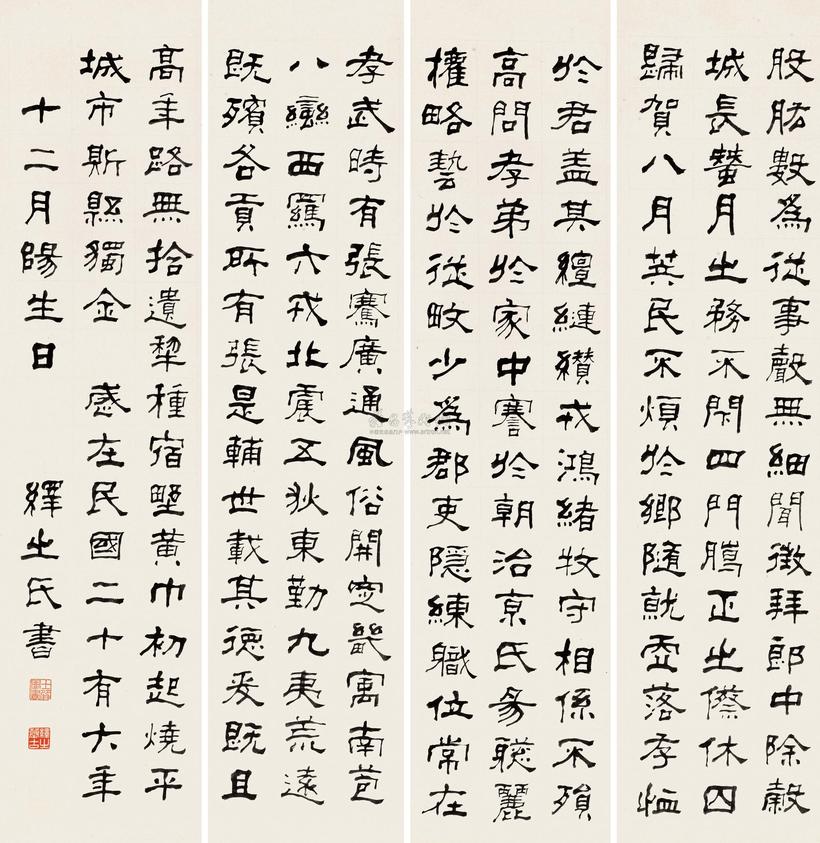 股肱數為從事聲無細聞徵拜郎中除穀
城長蠶月之務不閉四門臘正之僚休囚
歸賀八月筭民不煩於鄉隨就虛落存恤
於君蓋其繵縺纘戎鴻緒牧守相係不殞
高問孝弟於家中謇於朝治京氏易聰麗
權略藝於從畋少為郡吏隱練職位常在
孝武時有張騫廣通風俗開定畿寓南苞
八蠻西羈六戎北震五狄東勤九夷荒遠
既殯各貢所有張是輔世載其德爰既且
高年路無拾遺犂種宿野黃巾初起燒平
城市斯縣獨全 在民國二十有六年
十二月陽生日 繹之氏書